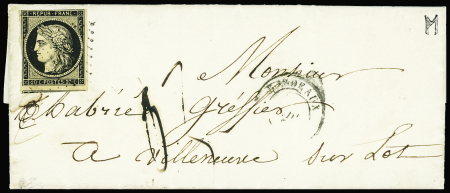 REPUB. FRANC.
20 C. POSTES 20 C.
Monsieur
Chabrié greffier
a Villeneuve sur Lot